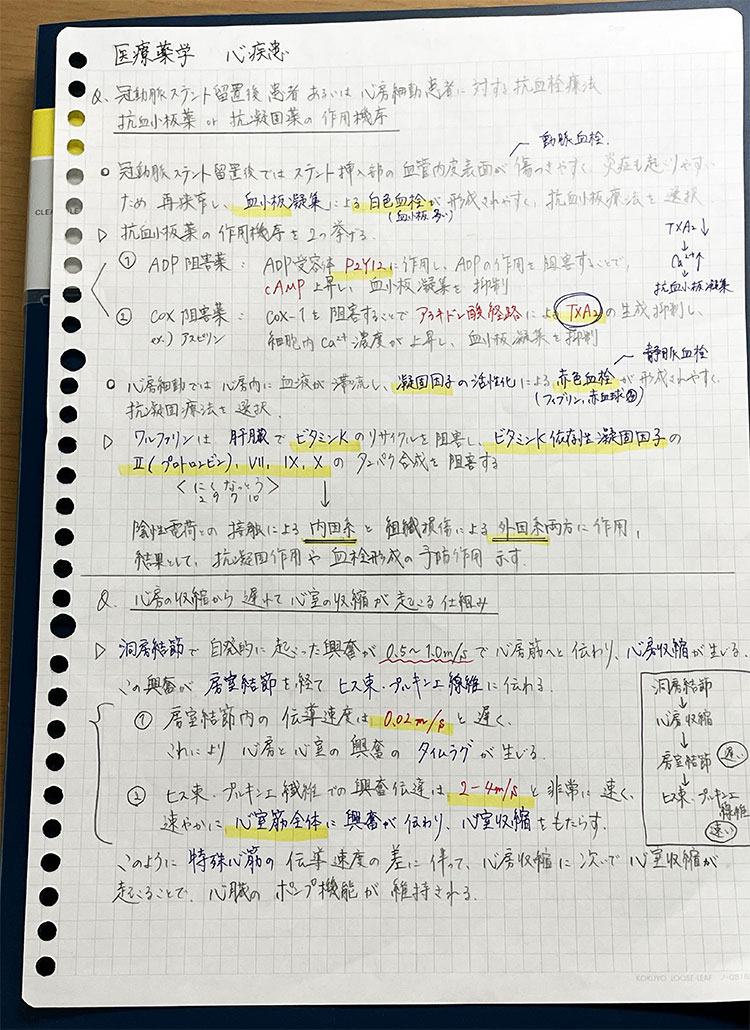 医療薬学 心疾患
Q. 冠動脈ステント留置後患者あるいは心房細動患者に対する抗血栓療法
抗血小板薬 or 抗凝固薬の作用機序
動脈血栓.
冠動脈ステント留置後ではステント挿入部の血管内皮表面が傷つきやすく、炎症も起こりやすい
ため 再狭窄し、血小板凝集による白色血栓が形成されやすく、抗血小板療法を選択
(血小板多い)
▷ 抗血小板薬の作用機序を2つ挙げる.
① ADP阻害薬 : ADP受容体 P2Y12に作用し、ADPの作用を阻害することで、
cAMP 上昇し、血小板凝集を抑制
② COX阻害薬 : COX-1を阻害することでアラキドン酸経路によるTXA2の生成抑制し、
ex.) アスピリン 細胞内Ca²⁺濃度が上昇し、血小板凝集を抑制
TXA2↓
↓
Ca²⁺↑
↓
抗血小板凝集
静脈血栓
心房細動では心房内に血液が滞流し、凝固因子の活性化による赤色血栓が形成されやすく、
(フィブリン、赤血球)
抗凝固療法を選択.
▷ ワルファリンは 肝臓で ビタミンKのリサイクルを阻害し、ビタミンK依存性凝固因子の
Ⅱ(プロトロンビン), Ⅶ, Ⅸ, Ⅹ の タンパク合成を阻害する
< にくなっとう >
2 9 7 10
↓
陰性電荷との接触による 内因系と 組織損傷による 外因系両方に作用,
結果として、抗凝固作用や血栓形成の予防作用 示す.
Q. 心房の収縮から遅れて心室の収縮が起こる仕組み
▷ 洞房結節で自発的に起こった興奮が 0.5~1.0m/sで心房筋へと伝わり、心房収縮が生じる.
この興奮が 房室結節を経て ヒス束・プルキンエ線維に伝わる.
① 房室結節内の伝導速度は 0.02m/s と遅く、
これにより 心房と心室の興奮の タイムラグが生じる.
② ヒス束・プルキンエ繊維での興奮伝達は 2-4m/s と非常に速く、
速やかに 心室筋全体に興奮が伝わり、心室収縮をもたらす.
洞房結節
↓
心房収縮
↓
房室結節 遅い
↓
ヒス束・プルキンエ
線維
速い
このように 特殊心筋の伝導速度の差に伴って、心房収縮に次いで心室収縮が
起こることで、心臓のポンプ機能が維持される.
KOKUYO LOOSE-LEAF